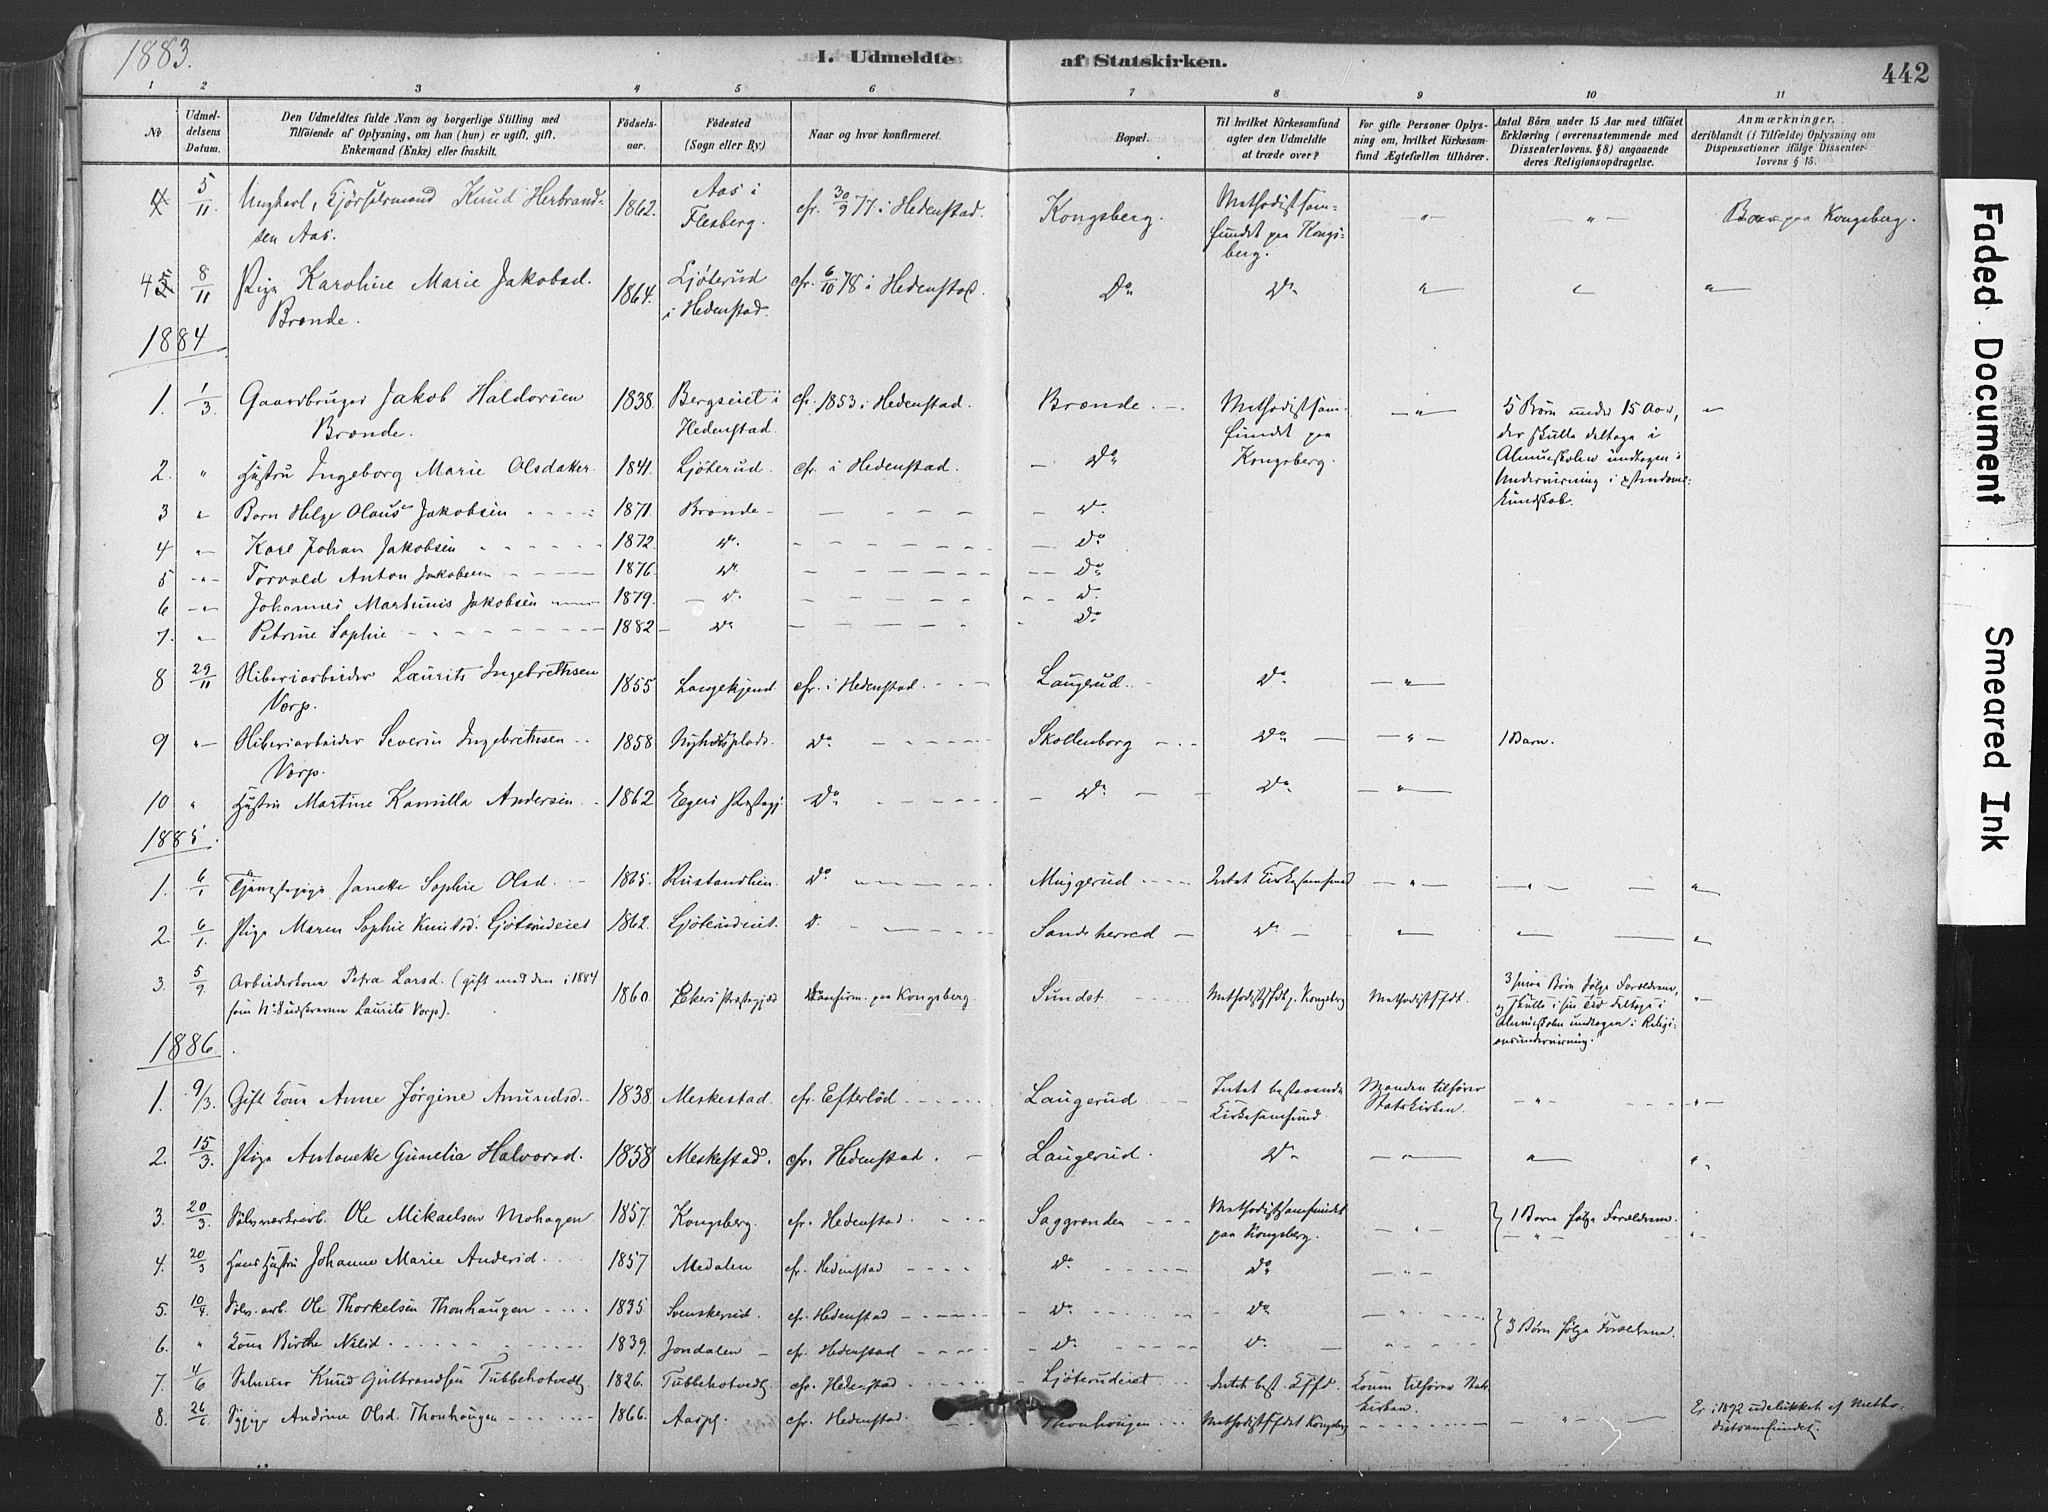 1883.
I. Udmeldte af Statskirken.
442
1 2 3 4 5 6 7 8 9 10 11
No
Udmeldelsens Datum.
Den Udmeldtes fulde Navn og borgerlige Stilling med
Tilføiende af Oplysning, om han (hun) er ugift, gift,
Enkemand (Enke) eller fraskilt.
Fødselsaar.
Fødested
(Sogn eller By.)
Naar og hvor konfirmeret.
Bopæl.
Til hvilket Kirkesamfund
agter den Udmeldte
at træde over?
For gifte Personer Oplys-
ning om, hvilket Kirkesam-
fund Ægtefællen tilhører.
Antal Børn under 15 Aar med tilføiet
Erklæring (overensstemmende med
Dissenterlovens. § 8) angaaende
deres Religionsopdragelse.
Anmærkninger,
deriblandt (i Tilfælde) Oplysning om
Dispensationer ifølge Dissenter-
lovens § 15.
4 5/11. Ungkarl, Kjørselsmand Knud Herbrand- 1862. Aas i cfr. 30/9 77 i Hedenstad. Kongsberg. Methodistsam- — " — — " — Boer paa Kongsberg.
sen Aas. Flesberg. fundet paa Kongs-
berg.
5 8/11 Pige Karoline Marie Jakobsd. 1864. Ljøterud cfr. 6/10 78 i Hedenstad. Do Do — " —
Brænde. i Hedenstad.
1884
1. 1/3 Gaardbruger Jakob Haldorsen 1838. Bergseiet i cfr. 1853 i Hedenstad. Brænde. Methodistsam- — " — 5 Børn under 15 Aar,
Brænde. Hedenstad. fundet paa der skulle deltage i
2. " Hustru Ingeborg Marie Olsdatter. 1841. Ljøterud. cfr. i Hedenstad. Do Kongsberg. Almueskolen undtagen i
Undervisning i
kundskab.
3 " Barn Helge Olaus Jakobsen 1871. Brænde Do
4 " Karl Johan Jakobsen 1872. Do Do
5 " Torvald Anton Jakobsen 1876. Do Do
6 " Johannes Martinius Jakobsen 1879. Do Do
7. " Petrine Sophie 1882 Do Do
8 29/11 Fiberiarbeider Laurits Ingebrethsen 1855 Langekjend cfr. i Hedenstad. Laugerud. Do — " —
Vorp.
9 " Fiberiarbeider Severin Ingebrethsen 1858 Nyhusplads. Do Skollenborg Do — " — 1 Barn.
Vorp.
10 " Hustru Martine Kamilla Andersen 1862 Egers Præstegj. Do Do Do — " —
1885.
1. 6/1 Tjenestepige Janette Sophie Olsd. 1865. Kustandlien. Do Muggerud Intet Kirkesamfund — " —
2. 6/1. Pige Maren Sophie Knutsd. Ljøterudeiet 1862. Ljøterudeiet. Do Sandeherred Do — " —
3. 5/9 Arbeiderkone Petra Larsd. (gift med den i 1884 1860. Ekers Præstegjæld Konfirm. paa Kongsberg. Sundet. Methodistsfdt. p. Kongsberg Methodistsfdt. 3 smaa Børn følge Forældrene,
som No 8 udtraadte Laurits Vorp). og skulle i sin Tid deltage i
Almueskolen undtagen i Religi-
onsundervisning.
1886.
1. 9/3. Gift Kone Anne Jørgine Amundsd. 1838. Meskestad. cfr. Efterlød Laugerud Intet bestaaende Manden tilhører
Kirkesamfund. Statskirken.
2. 15/3. Pige Antonette Gunelia Halvorsd. 1858 Meskestad. cfr. Hedenstad. Laugerud. Do — " —
3. 20/3. Sølvverksarb. Ole Mikaelsen Mohagen 1857. Kongsberg. cfr. Hedenstad. Saggrenden Methodistsamfundet — " — 1 Barn følge Forældrene.
paa Kongsberg.
4. 20/3 Hans Hustru Johanne Marie Andersd. 1857 Medalen cfr. Hedenstad Do Do — " —
5. 10/4. Sølv. arb. Ole Thorkelsen Thonhaugen 1835 Svenskerud. cfr. Hedenstad Do Do " 3 Børn følge Forældrene.
6. " Kone Birthe Nilsd. 1839. Jondalen cfr. Hedenstad Do Do
7. 4/6 Knud Gulbrandsen Tubbehotvedt 1826. Tubbehotvedt cfr. Hedenstad Ljøterudeiet Intet best. Konen tilhører Stats-
kirken.
8. 26/6 Pige Andrine Olsd. Thonhaugen 1866. Aaspl. cfr. Hedenstad. Thonhaugen Methodistsfdet Kongsberg — " — Er i 1892 udelukket af Metho-
distsamfundet.
Faded Document
Smeared Ink